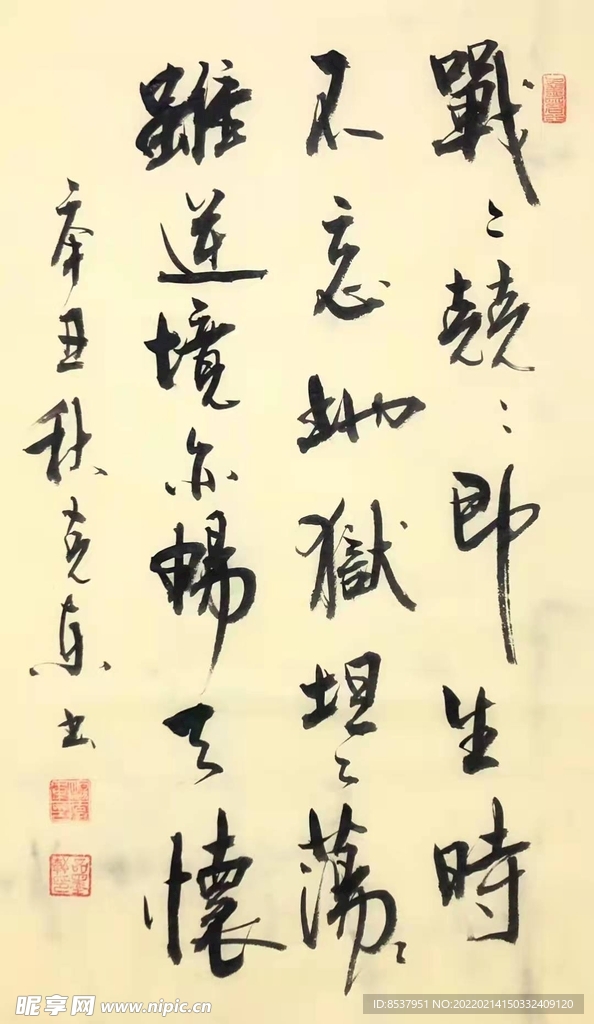 戰〻兢〻即生時
不忘地獄坦〻蕩〻
雖逆境亦暢天懷
辛丑秋克東書
昵享网 www.nipic.cn
ID:8537951 NO:20220214150332409120